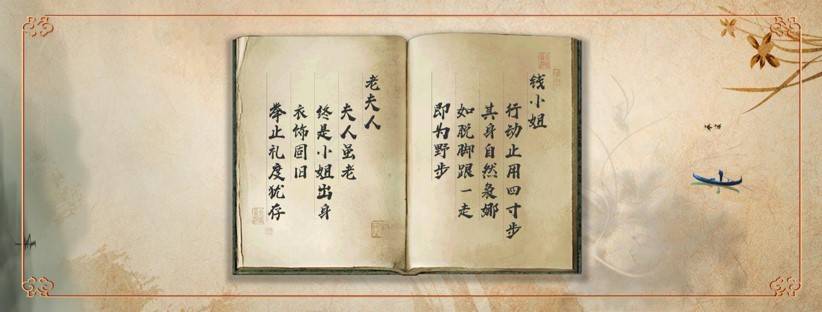 钱小姐
行动止用四寸步
其身自然袅娜
如脱脚跟一走
即为野步
老夫人
夫人虽老
终是小姐出身
衣饰固旧
举止礼度犹存